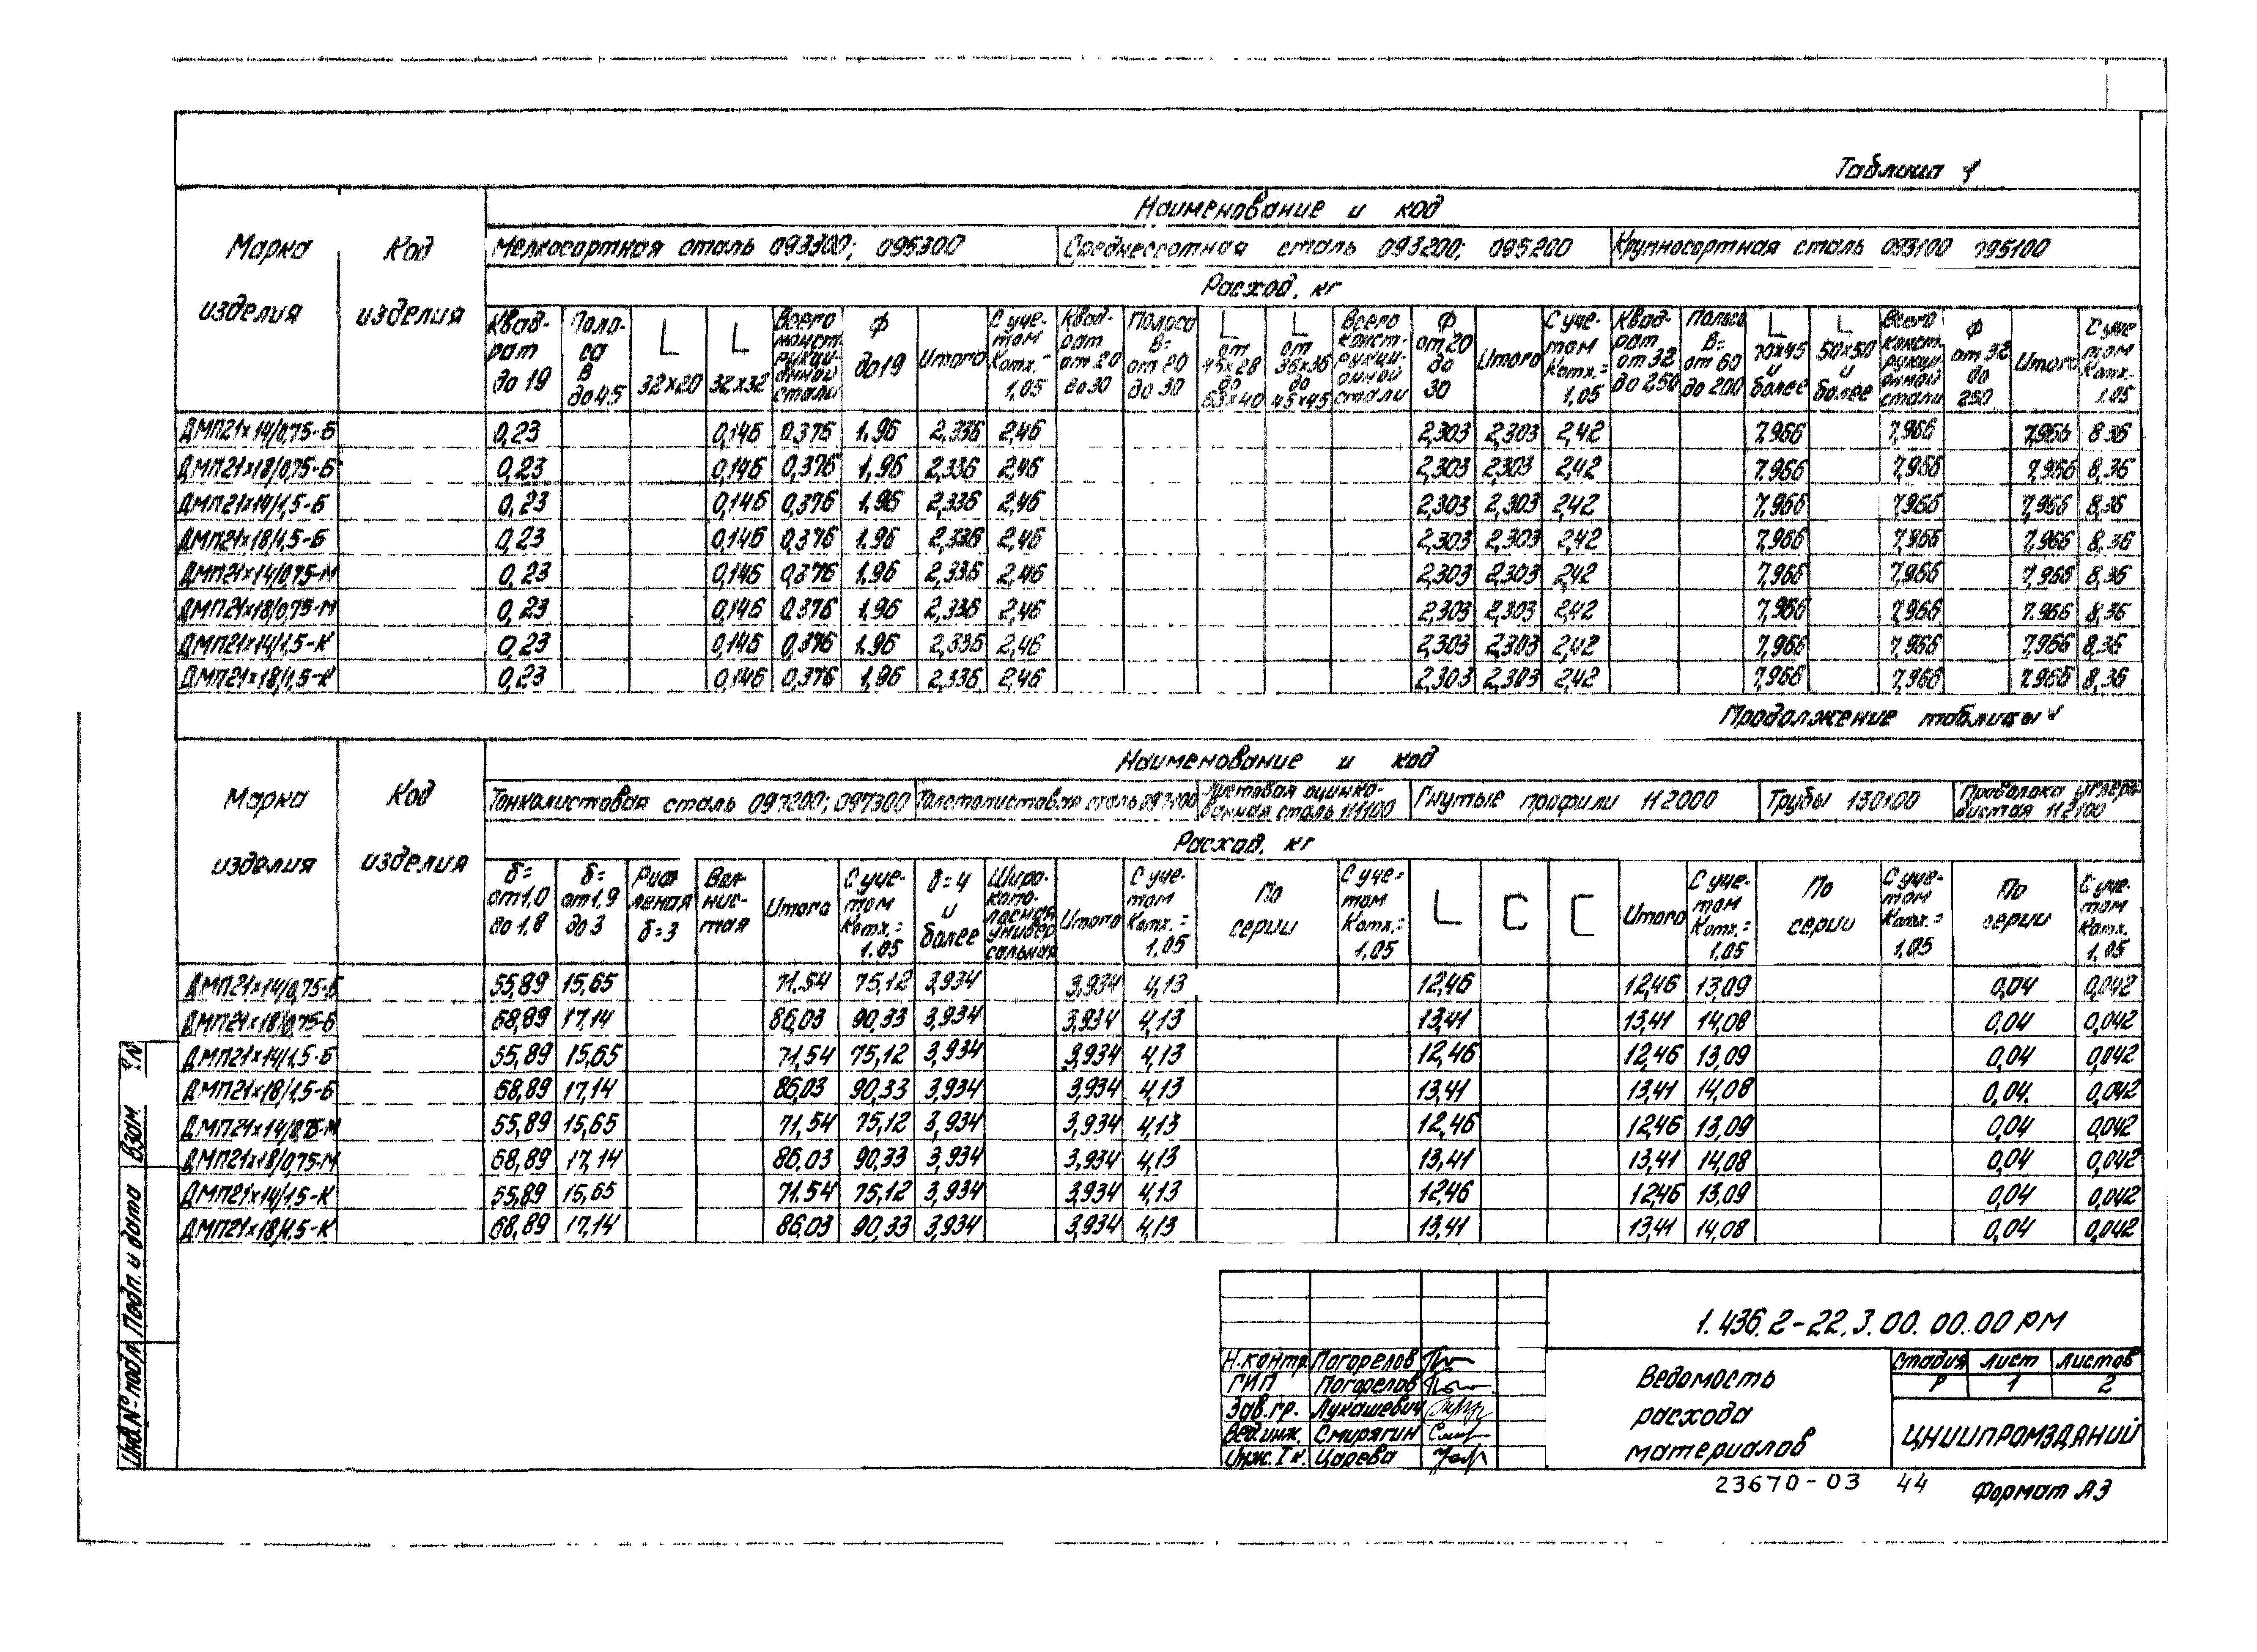 Таблица 1
Марка изделия
Код изделия
Наименование и код
Мелкосортная сталь 093300; 095300
Среднесортная сталь 093200; 095200
Крупносортная сталь 093100 095100
Расход, кг
Квад-рат до 19
Поло-са В до 45
L 32×20
L 32×32
Всего конст-рукци-онной стали
Ф до 19
Итого
С уче-том Котх.= 1,05
Квад-рат от 20 до 30
Полоса В= от 20 до 30
L от 45×28 до 63×40
L от 36×36 до 45×45
Всего конст-рукци-онной стали
Ф от 20 до 30
Итого
С уче-том Котх.= 1,05
Квад-рат от 32 до 250
Полоса В= от 60 до 200
L 70×45 и более
L 50×50 и более
Всего конст-рукци-онной стали
Ф от 32 до 250
Итого
С уче-том Котх.- 1.05
ДМП21×14/0,75-Б 0,23 0,146 0,376 1,96 2,336 2,46 2,303 2,303 2,42 7,966 7,966 7,966 8,36
ДМП21×18/0,75-Б 0,23 0,146 0,376 1,96 2,336 2,46 2,303 2,303 2,42 7,966 7,966 7,966 8,36
ДМП21×14/1,5-Б 0,23 0,146 0,376 1,96 2,336 2,46 2,303 2,303 2,42 7,966 7,966 7,966 8,36
ДМП21×18/1,5-Б 0,23 0,146 0,376 1,96 2,336 2,46 2,303 2,303 2,42 7,966 7,966 7,966 8,36
ДМП21×14/0,75-М 0,23 0,146 0,376 1,96 2,336 2,46 2,303 2,303 2,42 7,966 7,966 7,966 8,36
ДМП21×18/0,75-М 0,23 0,146 0,376 1,96 2,336 2,46 2,303 2,303 2,42 7,966 7,966 7.966 8,36
ДМП21×14/1,5-К 0,23 0,146 0,376 1,96 2,336 2,46 2,303 2,303 2,42 7,966 7,966 7,966 8,36
ДМП21×18/1,5-К 0,23 0,146 0,376 1,96 2,336 2,46 2,303 2,303 2,42 7,966 7,966 7.966 8,36
Продолжение таблицы 1
Марка изделия
Код изделия
Наименование и код
Тонколистовая сталь 097200; 097300
Толстолистовая сталь 097100
Листовая оцинко-ванная сталь 111100
Гнутые профили 112000
Трубы 130100
Проволока углеро-дистая 112100
Расход, кг
δ= от 1,0 до 1,8
δ= от 1,9 до 3
Риф леная δ=3
Вол-нис-тая
Итого
С уче-том Котх.= 1.05
δ=4 и более
Широ-копо-лосная универ сальная
Итого
С уче-том Котх.= 1.05
По серии
С уче-том Котх.= 1,05
L
C
[
Итого
С уче-том Котх.= 1,05
По серии
С уче-том Котх.= 1,05
По серии
С уче-том Котх. 1,05
ДМП21×14/0,75-Б 55,89 15,65 71.54 75,12 3,934 3,934 4,13 12,46 12,46 13,09 0,04 0,042
ДМП21×18/0,75-Б 68,89 17,14 86,03 90,33 3,934 3,934 4,13 13,41 13,41 14,08 0,04 0,042
ДМП21×14/1,5-Б 55,89 15,65 71,54 75,12 3,934 3,934 4,13 12,46 12,46 13,09 0,04 0,042
ДМП21×18/1,5-Б 68,89 17,14 86,03 90,33 3,934 3,934 4,13 13,41 13,41 14,08 0,04. 0,042
ДМП21×14/0,75-М 55,89 15,65 71,54 75,12 3,934 3,934 4,13 12,46 12,46 13,09 0,04 0,042
ДМП21×18/0,75-М 68,89 17,14 86,03 90,33 3,934 3,934 4,13 13,41 13,41 14,08 0,04 0,042
ДМП21×14/1,5-К 55,89 15,65 71.54 75,12 3,934 3,934 4,13 12,46 12,46 13,09 0,04 0,042
ДМП21×18/1,5-К 68,89 17,14 86,03 90,33 3,934 3,934 4,13 13,41 13,41 14,08 0,04 0,042
Инв.№ подл. Подп. и дата Взам
1.436.2-22.3.00.00.00 РМ
Н.контр. Погорелов
ГИП Погорелов
Зав.гр. Лукашевич
Вед.инж. Смирягин
Инж. I к. Царева
Ведомость расхода материалов
Стадия Лист Листов
Р 1 2
ЦНИИПРОМЗДАНИЙ
23670-03 44
Формат А3